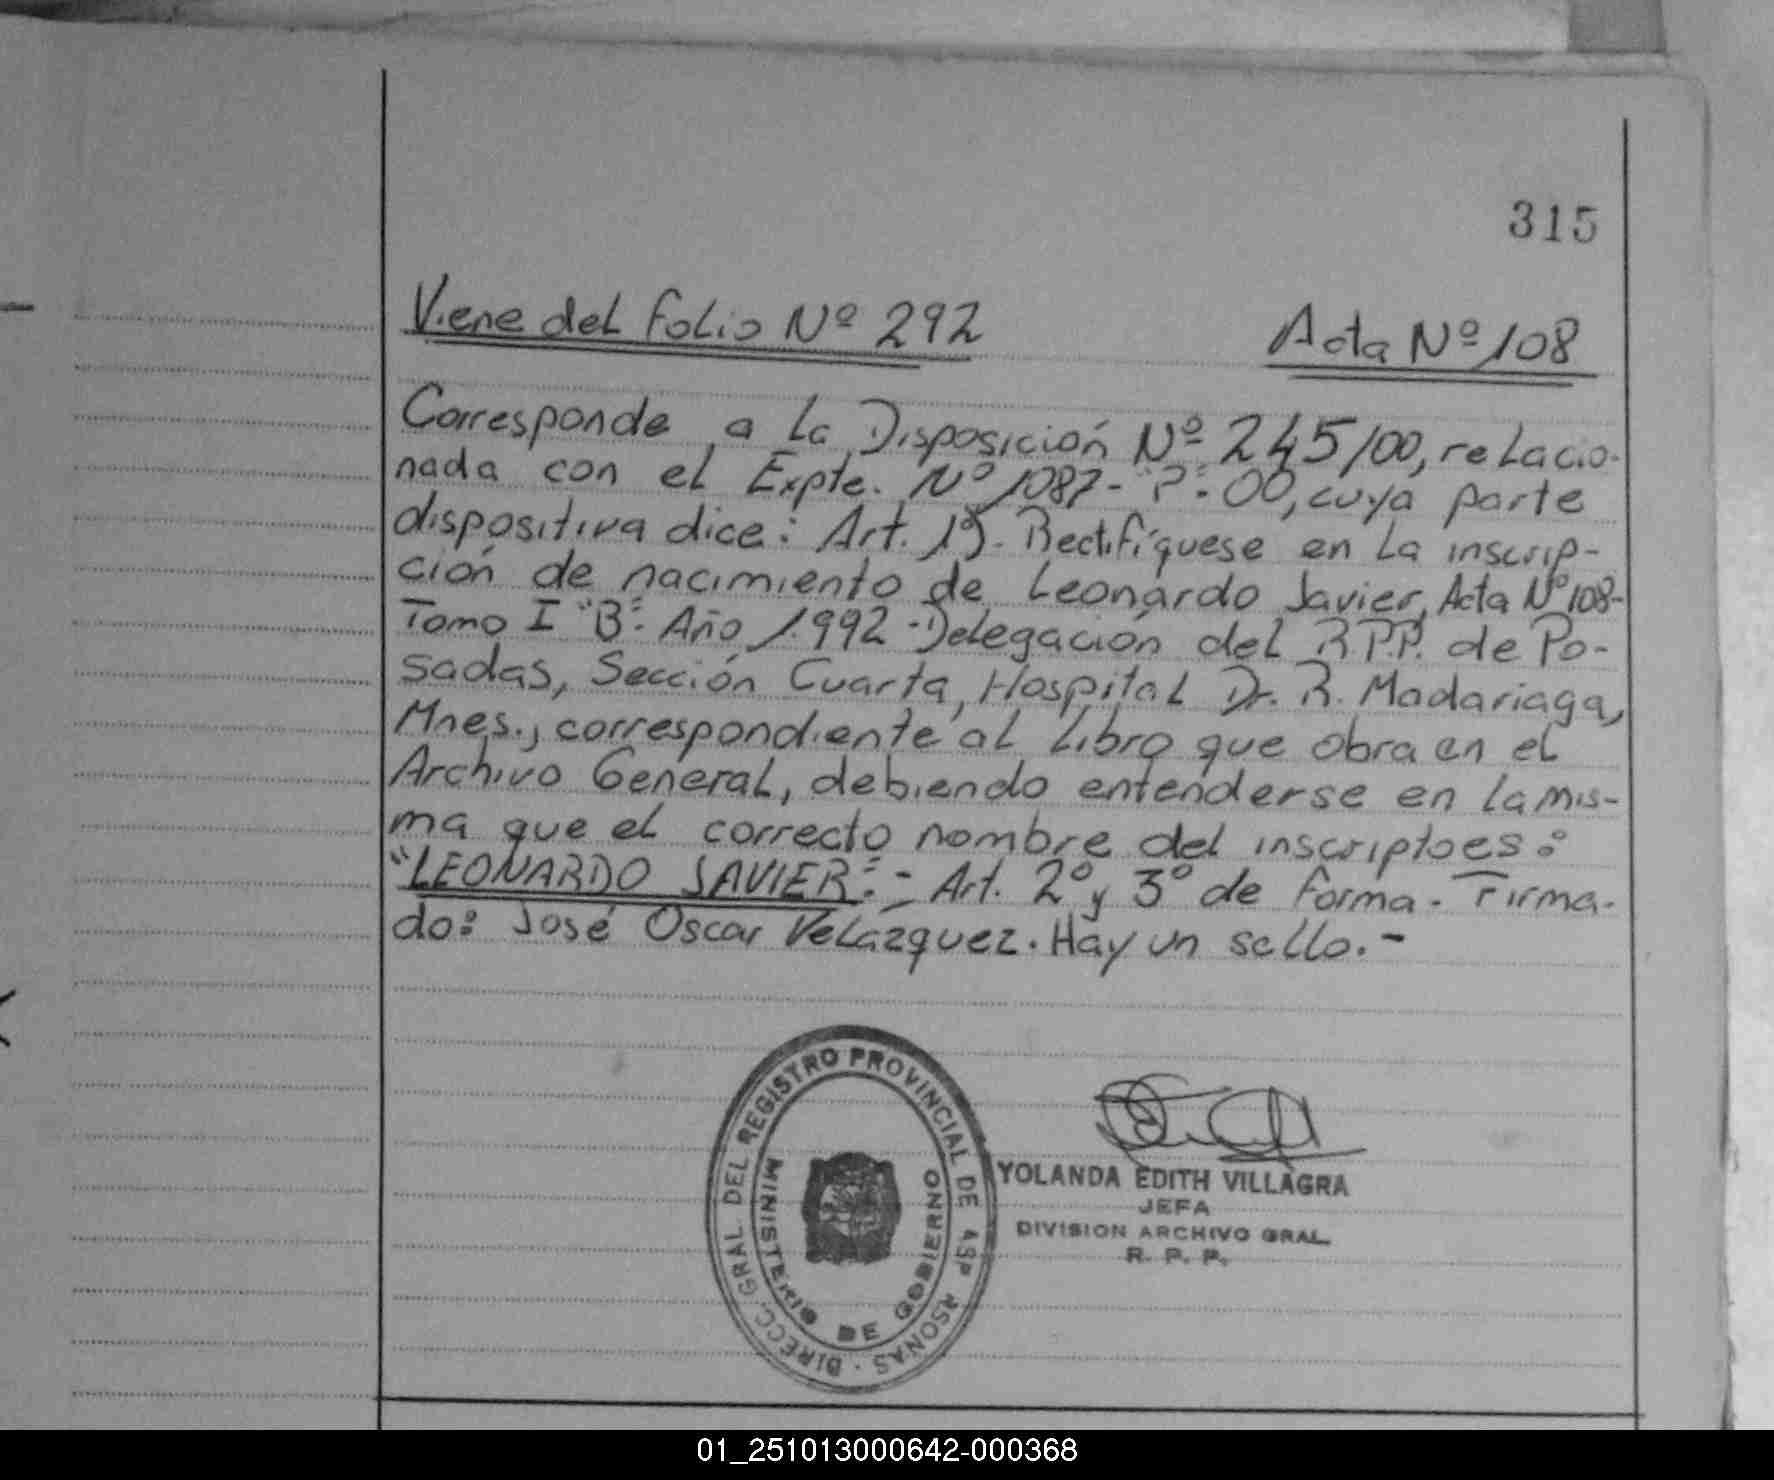 315
Viene del folio Nº 292 Acta Nº 108
Corresponde a la Disposición Nº 245/00, relacio-
nada con el Expte. Nº 1087-"P"-00, cuya parte
dispositiva dice: Art. 1º). Rectifíquese en la inscrip-
ción de nacimiento de Leonardo Javier, Acta Nº 108-
Tomo I "B"- Año 1.992 - Delegación del R.P.P. de Po-
sadas, Sección Cuarta, Hospital Dr. R. Madariaga,
Mnes., correspondiente al libro que obra en el
Archivo General, debiendo entenderse en la mis-
ma que el correcto nombre del inscripto es:
"LEONARDO JAVIER".- Art. 2º y 3º de forma. Firma-
do: José Oscar Velázquez. Hay un sello.-
DIRECC. GRAL. DEL REGISTRO PROVINCIAL DE
MINISTERIO DE GOBIERNO
YOLANDA EDITH VILLAGRA
JEFA
DIVISION ARCHIVO GRAL.
R. P. P.
01_251013000642-000368